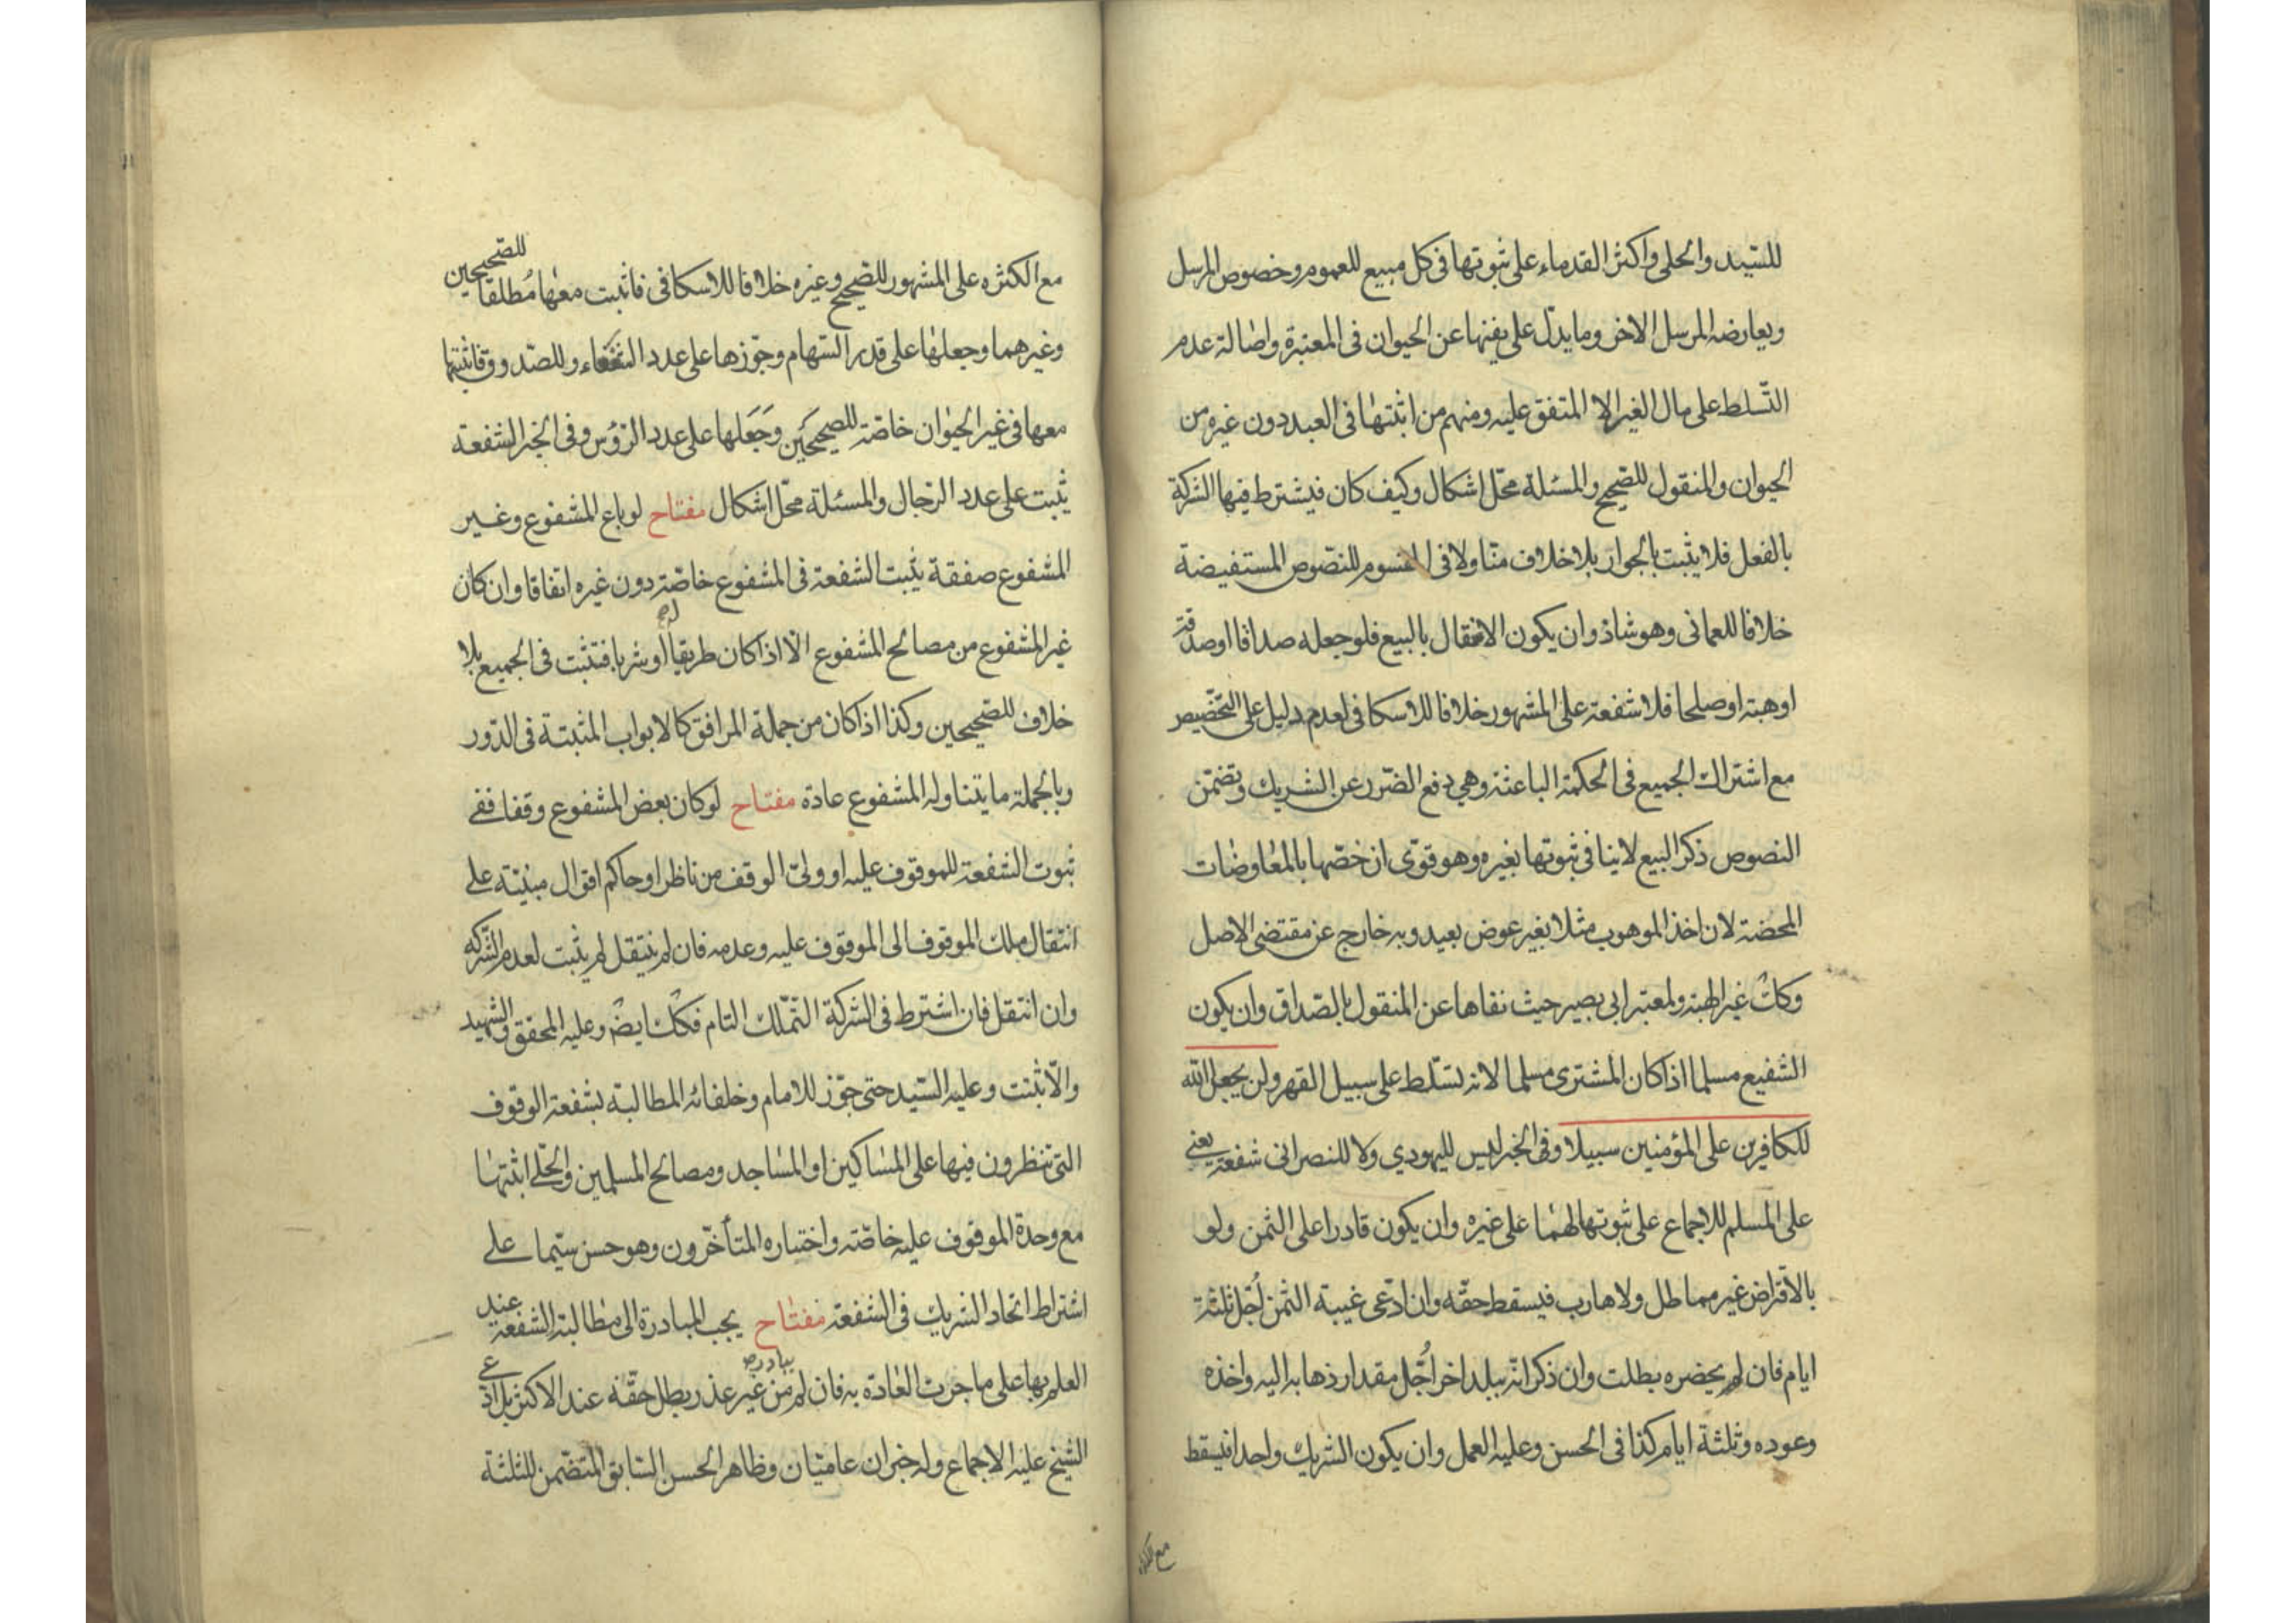 للسّيد والحلي واكثر القدماء على ثبوتها فى كل مبيع للعموم وخصوص المرسل
ويعارضه المرسل الاخر وما يدلّ على نفيها عن الحيوان فى المعتبرة واصالة عدم
التّسلط على مال الغير الا المتفق عليه ومنهم من اثبتها فى العبد دون غيره من
الحيوان والمنقول للصّحيح والمسئلة محّل اشكال وكيف كان فيشترط فيها الشركة
بالفعل فلا يثبت بالجوار بلا خلاف منّا ولا فى المقسوم للنصّوص المستفيضة
خلافا للعمانى وهو شاذ وان يكون الانتقال بالبيع فلو جعله صداقا او صدقة
او هبته او صلحا فلا شفعة على المشهور خلافا للاسكافى لعدم دليل على التّخصيص
مع اشتراك الجميع فى الحكمة الباعثة وهي دفع الضّرر عن الشريك وتضمّن
النصوص ذكر البيع لا ينافى ثبوتها بغيره وهو قوّى ان خصّها بالمعاوضات
المحضة لان اخذ الموهوب مثلا بغير عوض بعيد وبه خارج عن مقتضى الاصل
وكك غير الهبة ولمعتبر ابى بصير حيث نفاها عن المنقول بالصّداق وان يكون
الشفيع مسلما اذا كان المشترى مسلما لانه تسّلط على سبيل القهر ولن يجعل الله
للكافرين على المؤمنين سبيلا وفى الخبر ليس لليهودي ولا للنصرانى شفعة يعنى
على المسلم للاجماع على ثبوتها لهما على غيره وان يكون قادرا على الثمن ولو
بالاقراض غير مماطل ولا هارب فيسقط حقّه وان ادّعى غيبة الثمن اُجّل ثلثة
ايام فان لم يحضره بطلت وان ذكر انّه ببلد اخر اُجّل مقدار ذهابه اليه واخذه
وعوده وثلثة ايام كذا فى الحسن وعليه العمل وان يكون الشريك واحدا فيسقط
مع الكثره
مع الكثره على المشهور للصّحيح وغيره خلافا للاسكافى فاثبت معها مُطلقا للصّحيحين
وغيرهما وجعلها على قدر السّهام وجّوزها على عدد الشفعاء وللصّدوق فاثبتها
معها فى غير الحيوان خاصّة للصحيحَين وجَعَلها على عدد الرّؤس وفى الخبر الشفعة
يثبت على عدد الرّجال والمسئلة محّل اشكال مفتاح لو باع المشفوع وغير
المشفوع صفقة يثبت الشفعة فى المشفوع خاصّة دون غيره اتفاقا وان كان
غير المشفوع من مصالح المشفوع الّا اذا كان طريقا له او شربا فتثبت فى الجميع بلا
خلاف للصّحيحين وكذا اذا كان من جملة المرافق كالابواب المثبتة فى الدّور
وبالجملة ما يتناوله المشفوع عادة مفتاح لو كان بعض المشفوع وقفا ففى
ثبوت الشفعة للموقوف عليه او ولىّ الوقف من ناظر او حاكم اقوال مبنيّة على
انتقال ملك الموقوف الى الموقوف عليه وعدمه فان لم ينتقل لم يثبت لعدم الشّركه
وان انتقل فان اشترط فى الشركة التمّلك التام فكك ايضْ وعليه المحقق والشّهيد
والّا ثبتت وعليه السّيد حتى جّوز للامام وخلفائه المطالبة بشفعة الوقوف
التى تنظرون فيها على المساكين او المساجد ومصالح المسلمين والحّلى اثبتها
مع وحدة الموقوف عليه خاصّة واختباره المتأخّرون وهو حسن سيّما على
اشتراط اتحاد الشريك فى الشفعة مفتاح يجب المبادرة الى مطالبة الشفعة عند
العلم بها على ما جرت العادة به فان لم يبادر من غير عذر بطل حقّه عند الاكثر بل ادّعى
الشيخ عليه الاجماع وله خبران عاميّان وظاهر الحسن السّابق المتضمّن للثلثة